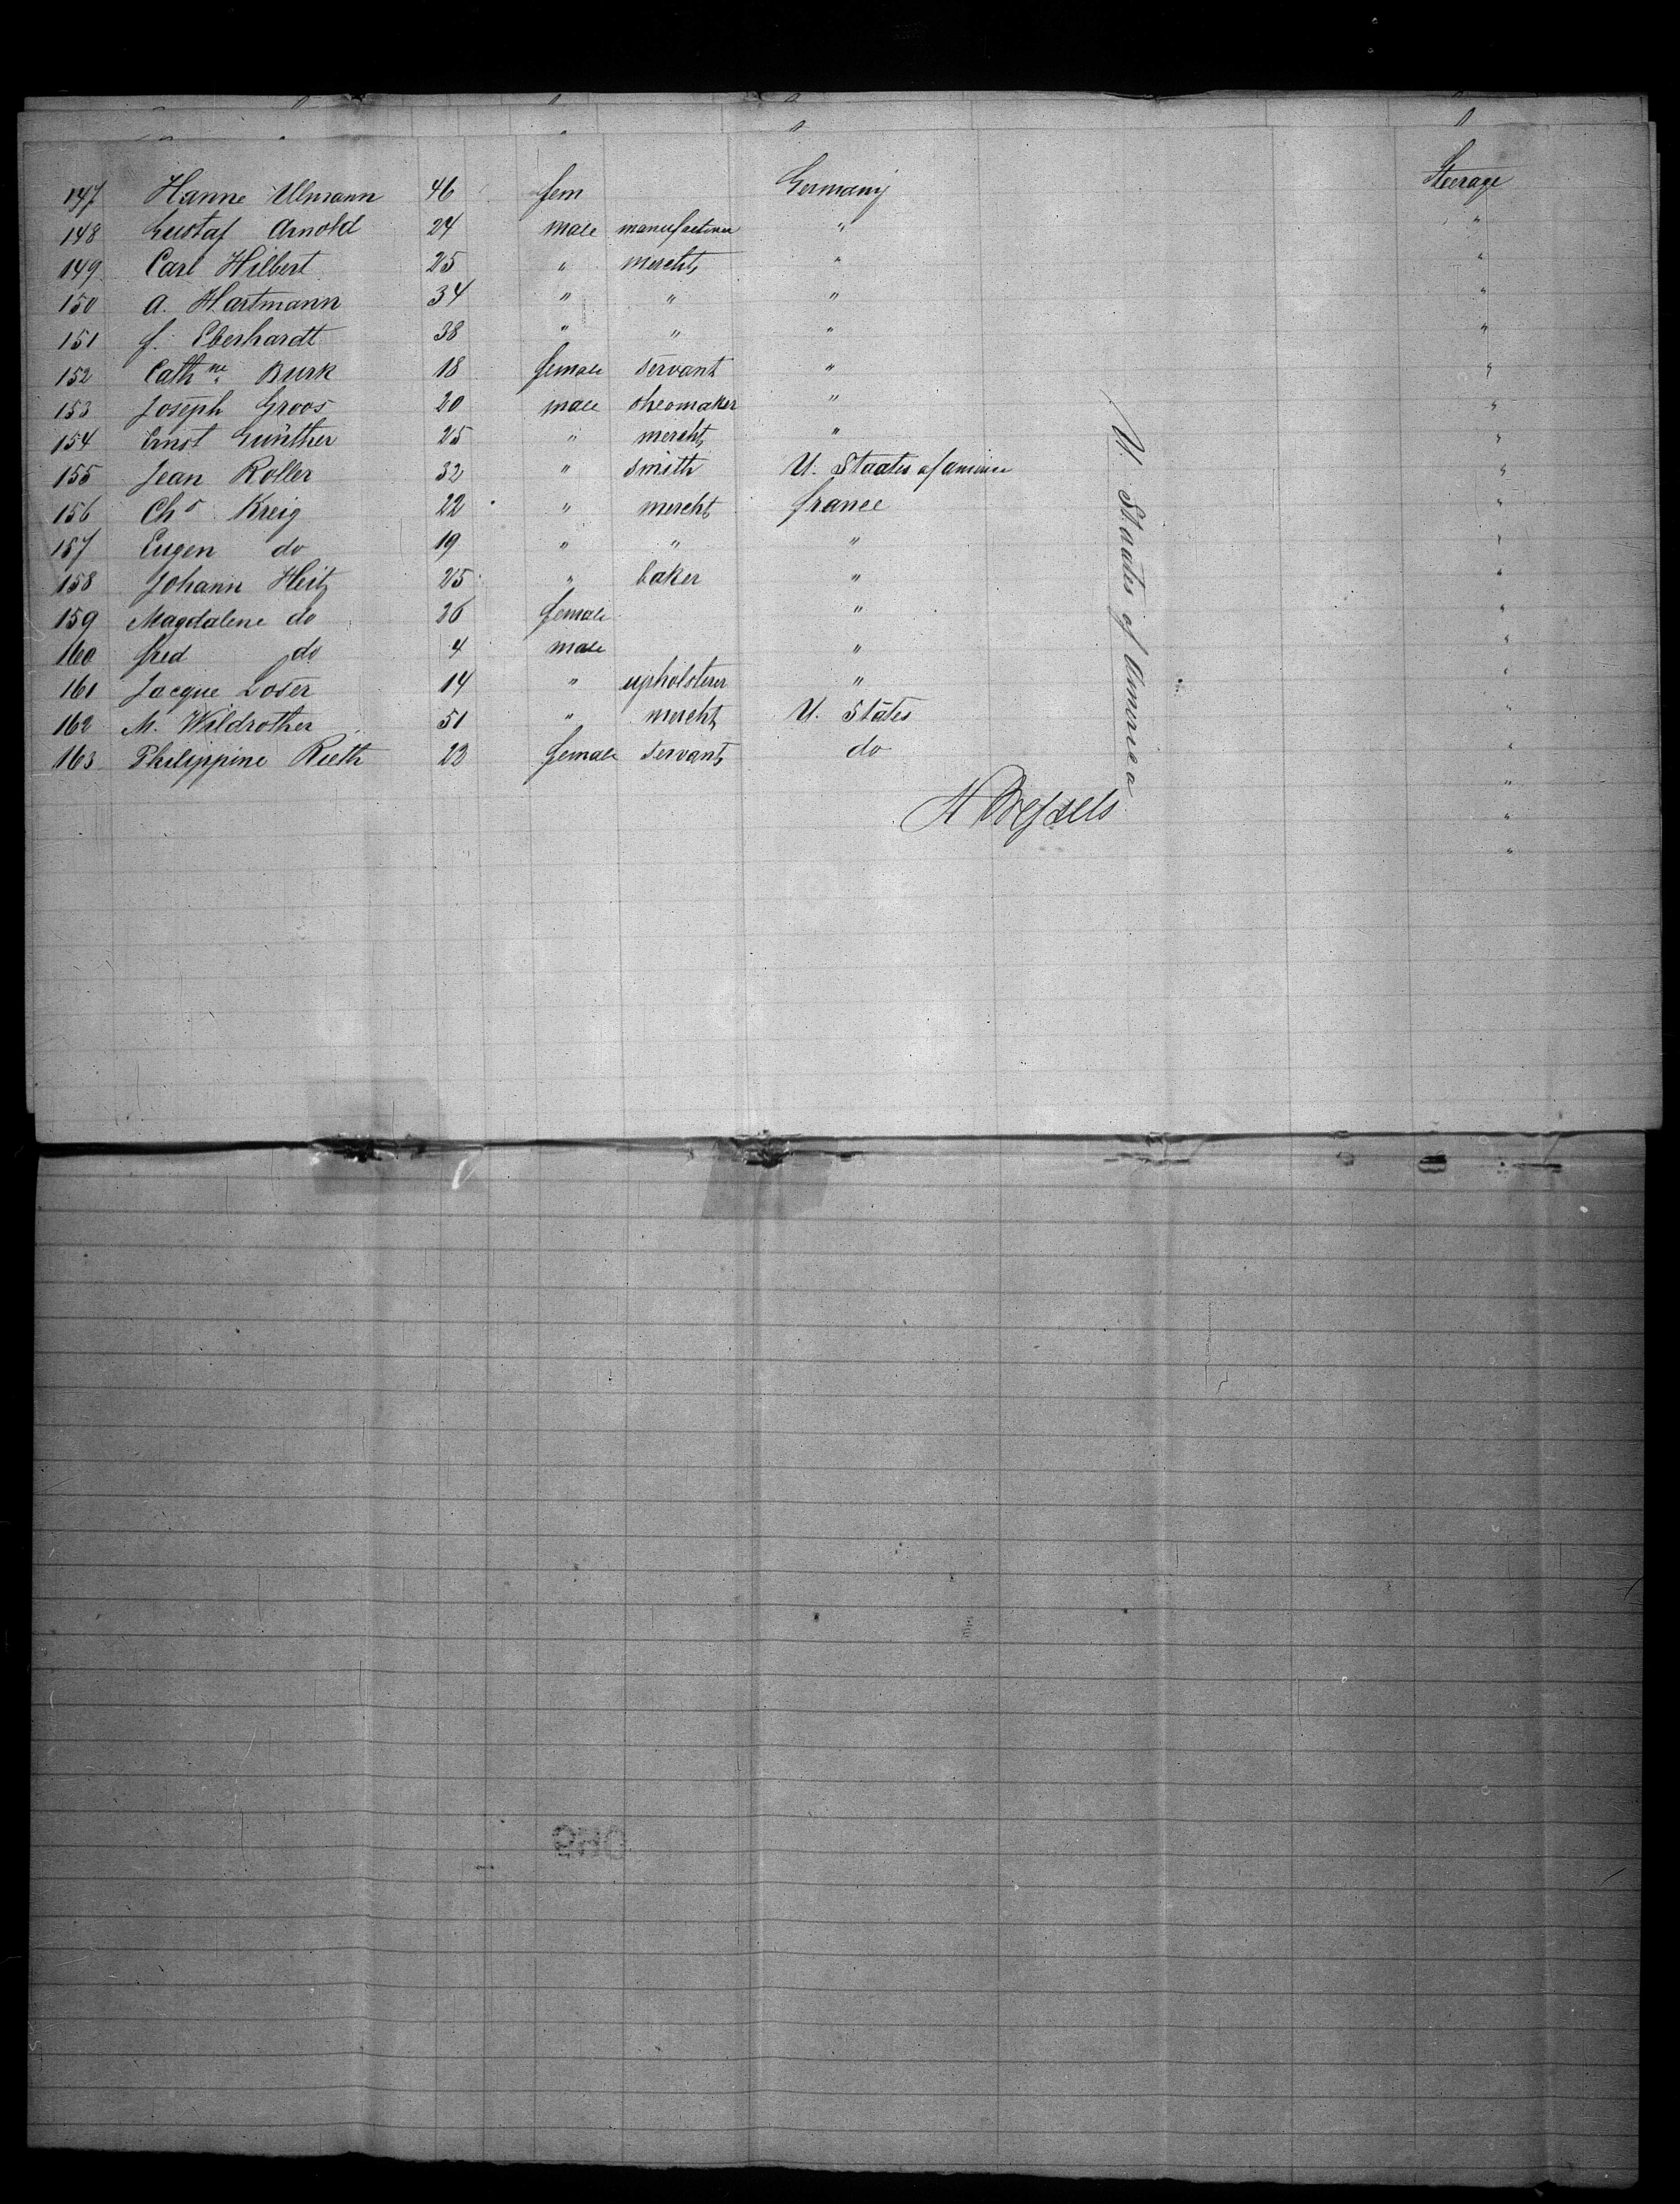 147 Hanne Ullmann 46 fem Germany Steerage
148 Gustaf Arnold 24 male manufacturer " "
149 Carl Hilbert 25 " mercht " "
150 A. Hartmann 34 " " " "
151 f. Eberhardt 38 " " " "
152 Cathne Burk 18 female servant " "
153 Joseph Groos 20 male sheomaker " "
154 Ernst Günther 25 " mercht " "
155 Jean Roller 32 " smith U. Staates of America "
156 Chs Kreig 22 " mercht france "
157 Eugen do 19 " " " "
158 Johann Heitz 25 " baker " "
159 Magdalene do 26 female " "
160 fred do 4 male " "
161 Jacque Loser 14 " upholsterer " "
162 M. Wildrother 51 " mercht U. States "
163 Philippine Rieth 23 female servant do "
U. Staates of America
"
H Wessels
"
"